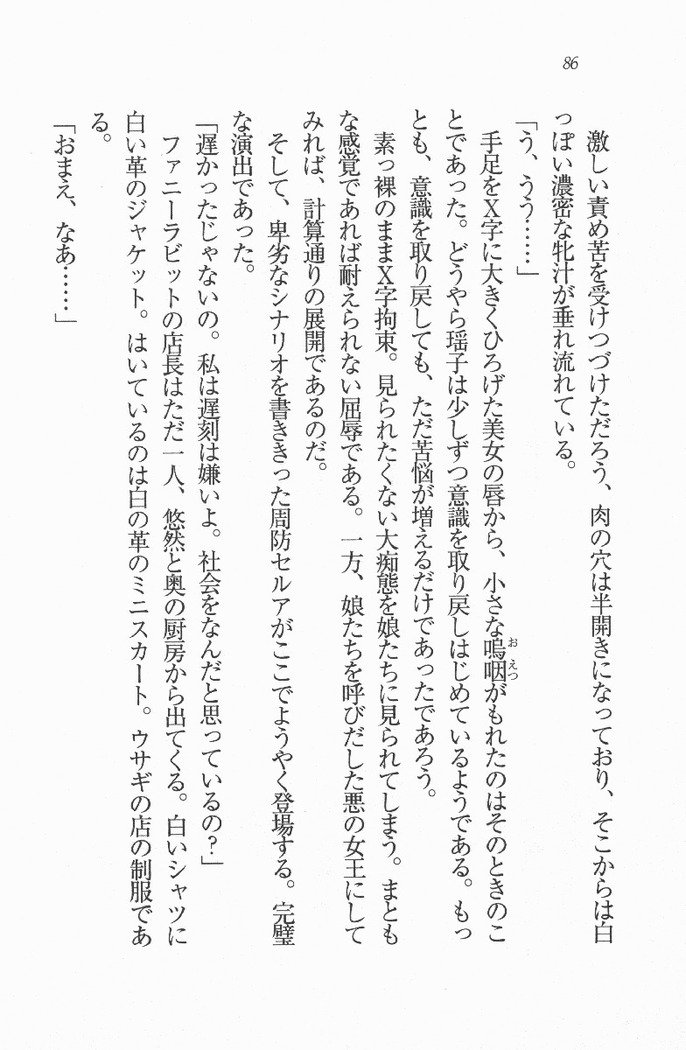 86
激しい責め苦を受けつづけただろう、肉の穴は半開きになっており、そこからは白
っぽい濃密な牝汁が垂れ流れている。
「う、うう……」
手足をX字に大きくひろげた美女の唇から、小さな嗚咽がもれたのはそのときのこ
とであった。どうやら瑶子は少しずつ意識を取り戻しはじめているようである。もっ
とも、意識を取り戻しても、ただ苦悩が増えるだけであったであろう。
素っ裸のままX字拘束。見られたくない大痴態を娘たちに見られてしまう。まとも
な感覚であれば耐えられない屈辱である。一方、娘たちを呼びだした悪の女王にして
みれば、計算通りの展開であるのだ。
そして、卑劣なシナリオを書ききった周防セルアがここでようやく登場する。完璧
な演出であった。
「遅かったじゃないの。私は遅刻は嫌いよ。社会をなんだと思っているの？」
ファニーラビットの店長はただ一人、悠然と奥の厨房から出てくる。白いシャツに
白い革のジャケット。はいているのは白の革のミニスカート。ウサギの店の制服であ
る。
「おまえ、なあ……」